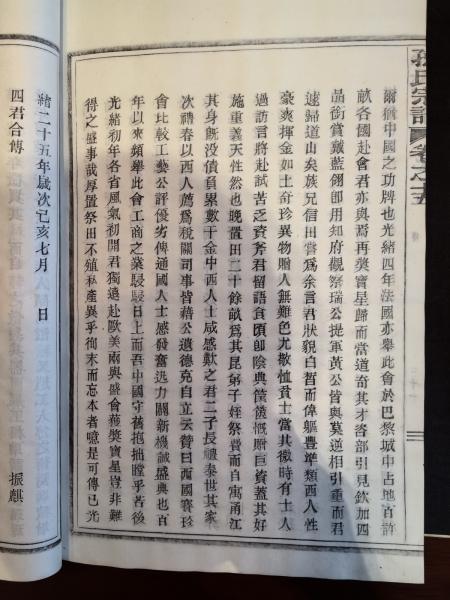 孫氏宗譜 卷之十五
爾猶中國之功牌也光緒四年法國亦舉此會於巴黎城中占地百許
畝各國赴會君亦與焉再獎寶星歸而當道奇其才咨部引見欽加四
品銜賞戴藍翎即用知府觀察瑞公提軍黃公皆與莫逆相引重而君
遽歸道山矣族兄信田嘗爲余言君狀貌白皙而偉軀豐準類西人性
豪爽揮金如土奇珍異物贈人無難色尤敬恤貧士當其微時有士人
過訪言將赴試苦乏資斧君留語食頃即陰典篋篋慨贈巨資蓋其好
施重義天性然也晚置田二十餘畝爲其昆弟子姪祭費而自寓甬江
其身旣沒債負累數千金中西人士咸感歎之君二子長禮泰世其家
次禮春以西人薦爲稅關司事皆藉公遺德克自立云贊曰西國賽珍
會比較工藝公評優劣俾通國人士感發奮迅力闢新機誠盛典也百
年以來頻舉此會工商之業駸駸日上而吾中國守舊抱拙瞠乎若後
光緒初年各省風氣初開君獨遠赴歐美兩與盛會獲獎寶星豈非難
得之盛事哉厚置祭田不殖私產異乎徇末而忘本者噫是可傳已光
緒二十五年歲次己亥七月 日
四君合傳 振麒